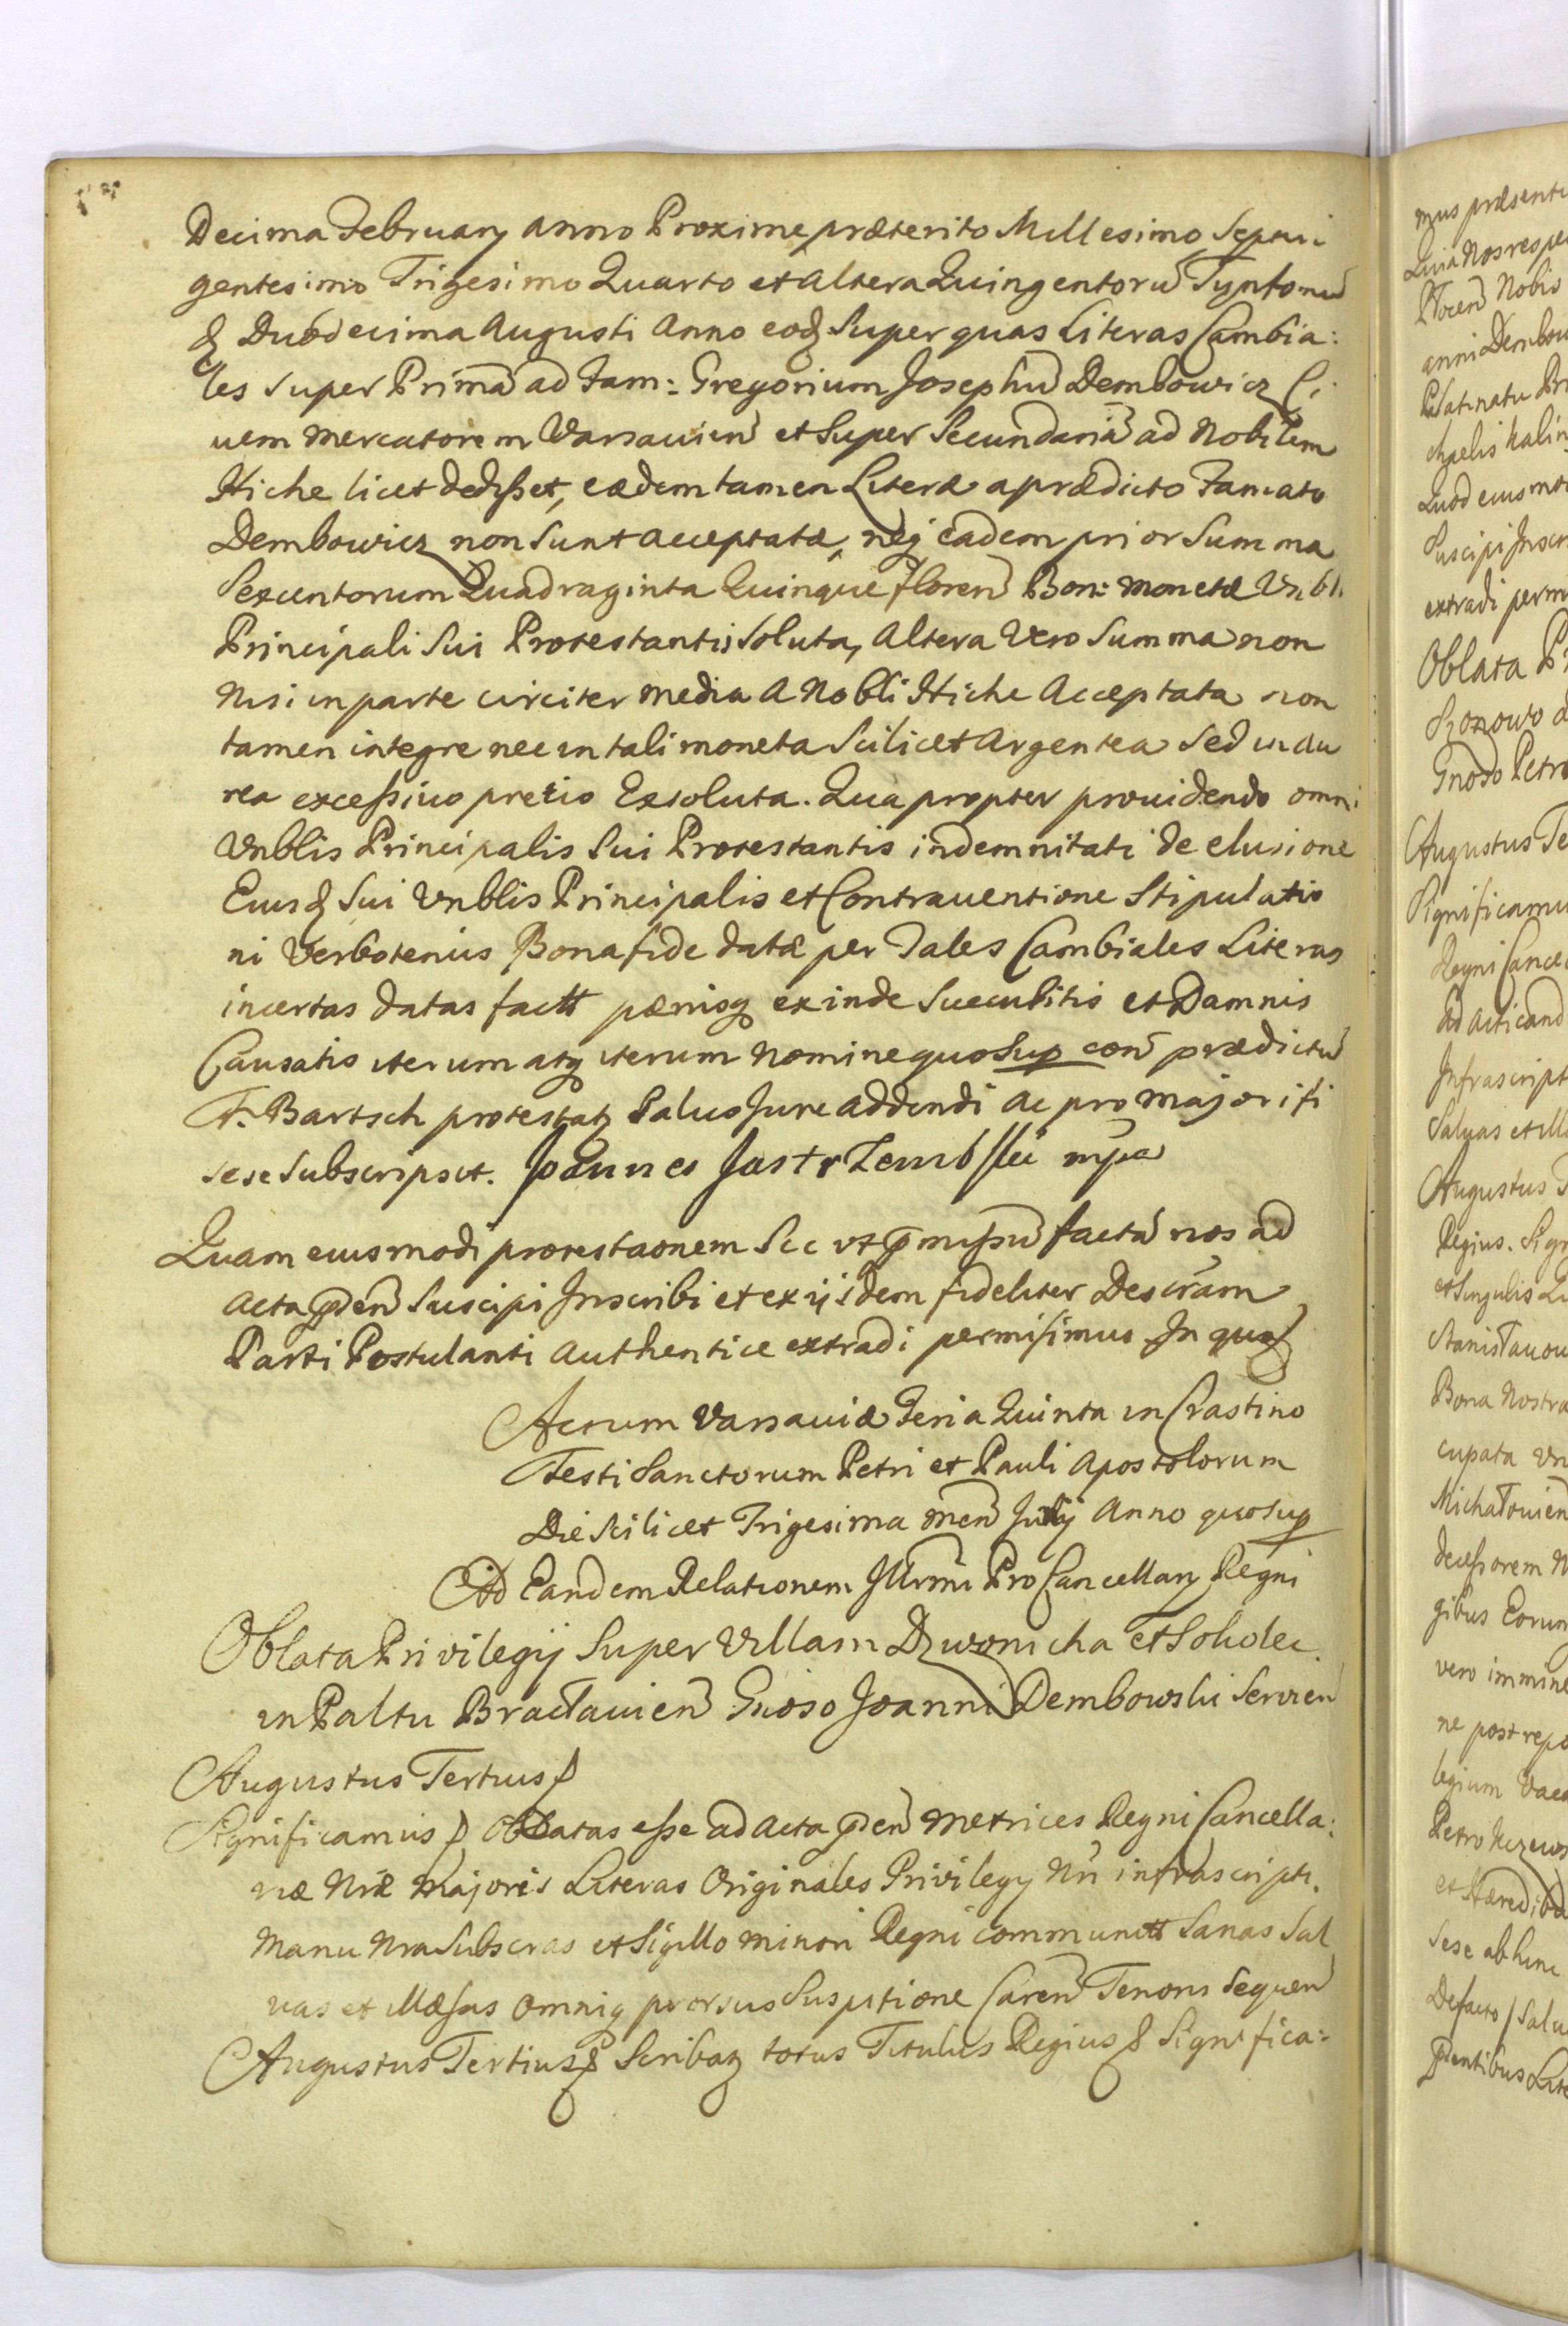 Decima February anno Proxime præterito Millesimo Septin
gentesimo Trigesimo Quarto et altera Quingentorū Tynfonū
& Duodecima Augusti Anno eod Super quas Literas Cambia:
les super Primā ad Fam: Gregorium Josephū Dembowicz Ci
uem mercatorem Varsauien et Super Secundariā ad Nobilem
Hiche licet dedisset, eædem tamen Literæ a prædicto Famato
Dembowicz non sunt acceptatæ, neq eadem prior Summa
Sexcentorum Quadraginta Quinque floren Bon: monetæ Vnbl.
Principali Sui Protestantis Soluta, altera Vero Summa non
nisi in parte circiter media a Nobli Hiche Acceptata non
tamen integre nec in tali moneta Scilicet Argentea Sed in au
rea excessiuo pretio Exsoluta. Qua propter prouidendo omni
Vnblis Principalis Sui Protestantis indemnitati de elusione
Eiusd Sui Vnblis Principalis et Contrauentione Stipulatio
ni Verbotenus Bona fide datæ per Tales Cambiales Literas
incertas datas fact pænisq exinde Succubitis et Damnis
Causatis iterum atq iterum Nomine quo Sup con prædictū
F. Bartsch protestat Saluo Jure addendi ac pro majori fi
se se subscripsit. Joannes Jastrzembski mpa
Quam eiusmodi protestaonem Sic vt præmissū factā nos ad
Acta pden Suscipi Inscribi et ex ijsdem fideliter Descrām
Parti Postulanti authentice extradi permisimus In quor
Actum Varsauiæ Feria Quinta in Crastino
Festi Sanctorum Petri et Pauli Apostolorum
Die Scilicet Trigesima men Junij Anno quo Sup
Ad Eandem Relationem Illrmi Pro Cancellary Regni
Oblata Privilegij Super Villam Dzwonicha et Soholec
in Paltu Bractauien Gnoso Joanni Dembowski Servien
Augustus Tertius
Significamus Oblatas esse ad Acta pden Metrices Regni Cancella:
riæ Nræ Majoris Literas Originales Privilegy Nri infrascripti.
Manu Nra Subscras et Sigillo minori Regni communit Sanas Sal
uas et Illæsas omniq prorsus Suspitione Caren Tenoris Sequen
Augustus Tertius & Scribat totus Titulus Regius & Significa:
mus præsenti
Quia Nos respe
Nobis
anni Dembow
Palatinatu Br
chaelis Kalin
Quod eiusmo
Suscipi Inscr
extradi perm
Oblata P
Gnoso Petro
Augustus Te
Significamu
Regni Cance
Ad acticand
Infrascript
Saluas et Ill
Augustus T
Regius. Sign
et Singulis Li
Stanisłauow
Bona Nostra
cupata
Michałouien
decessorem N
gibus Eorum
vero immine
ne post repo
legium Vaca
et Hæredib
sese ab hinc
De facto / Salu
pdentibus Lite